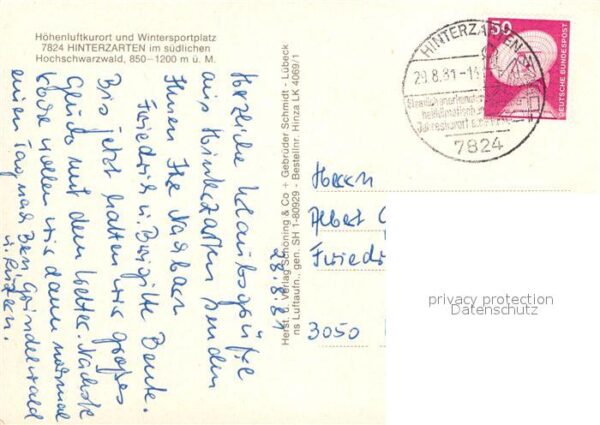 Höhenluftkurort und Wintersportplatz
7824 HINTERZARTEN im südlichen
Hochschwarzwald, 850–1200 m ü. M.
Herzliche Urlaubsgrüße
aus Hinterzarten senden
Ihnen Ihre Nachbarn
Friedrich u. Brigitte Beute.
Bis jetzt hatten wir großes
Glück mit dem Wetter. Nächste
Woche wollen wir dann nochmal
einen Tag nach Bern, Grindelwald
u. Luzern.
28.8.81
Herst. u. Verlag Schöning & Co + Gebrüder Schmidt - Lübeck
ns Luftaufn., gen. SH 1-80929 - Bestellnr. Hinza LK 4069/1
HINTERZARTEN
29.8.81-14
heilklimatischer
Jahreskurort
7824
50
DEUTSCHE BUNDESPOST
Herrn
Albert
Friedr
3050
privacy protection
Datenschutz